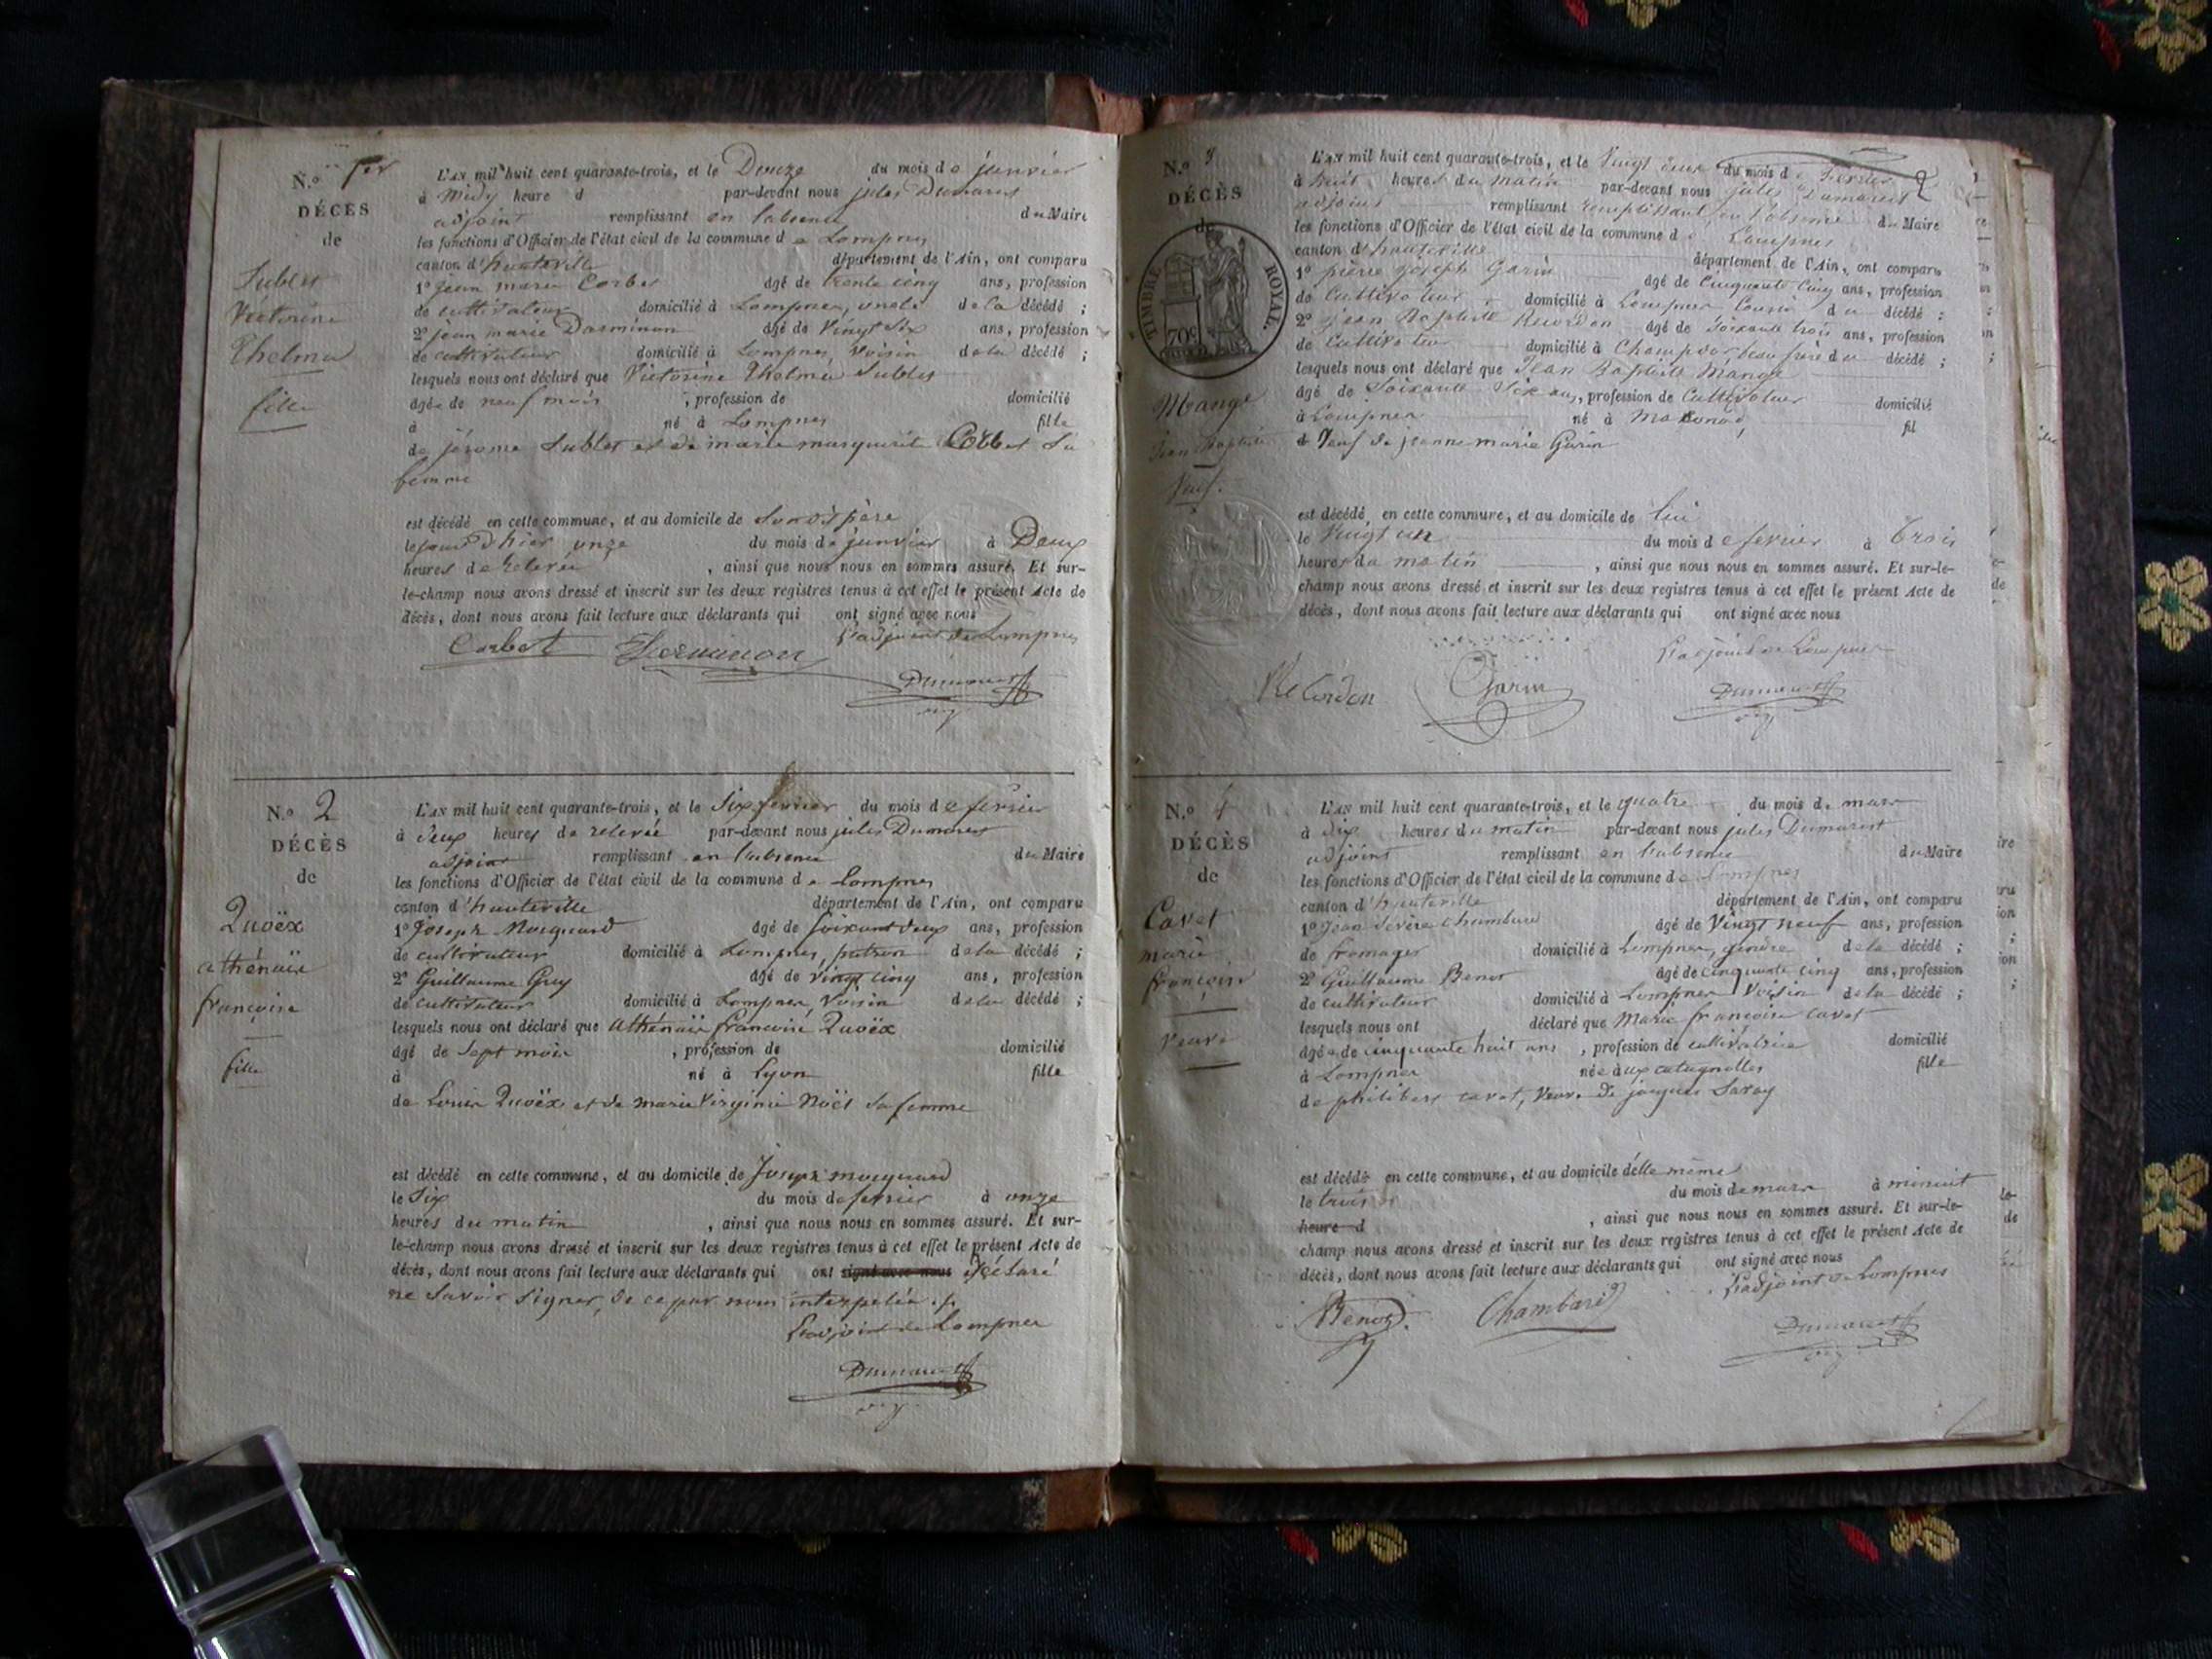 N.o 1er
DÉCÈS
de
Sublet
Victorine
Thelma
fille
L'AN mil huit cent quarante-trois, et le Douze du mois de janvier
à Midy heure d par-devant nous jules Dumarest
adjoint remplissant en l'absence du Maire
les fonctions d'Officier de l'état civil de la commune de Lompnes
canton d'hauteville département de l'Ain, ont comparu
1o jean marie Corbet âgé de trente cinq ans, profession
de cultivateur domicilié à Lompnes, oncle de la décédé ;
2o jean marie Darminon âgé de Vingt six ans, profession
de cultivateur domicilié à Lompnes, Voisin de la décédé ;
lesquels nous ont déclaré que Victorine Thelma Sublet
âgée de neuf mois , profession de domicilié
à né à Lompnes fille
de jérome Sublet et de marie marguerite Corbet Sa
femme
est décédé en cette commune, et au domicile de Son dit père
le jour d'hier onze du mois de janvier à Deux
heures de relevée , ainsi que nous nous en sommes assuré. Et sur-
le-champ nous avons dressé et inscrit sur les deux registres tenus à cet effet le présent Acte de
décès, dont nous avons fait lecture aux déclarants qui ont signé avec nous
L'adjoint de Lompnes
Corbet
Dumarest
N.o 2
DÉCÈS
de
Quoëx
athénaïs
francoise
fille
L'AN mil huit cent quarante-trois, et le Six fevrier du mois de fevrier
à deux heures de relevée par-devant nous jules Dumarest
adjoint remplissant en l'absence du Maire
les fonctions d'Officier de l'état civil de la commune de Lompnes
canton d'hauteville département de l'Ain, ont comparu
1o Joseph Morquard âgé de soixant deux ans, profession
de cultivateur domicilié à Lompnes, patron de la décédé ;
2o Guillaume Guy âgé de vingt cinq ans, profession
de cultivateur domicilié à Lompnes, Voisin de la décédé ;
lesquels nous ont déclaré que athénaïs francoise Quoëx
âgé de Sept mois , profession de domicilié
à né à Lyon fille
de Louis Quoëx et de marie Virginie Noël Sa femme
est décédé en cette commune, et au domicile de Joseph morquard
le Six du mois de fevrier à onze
heures du matin , ainsi que nous nous en sommes assuré. Et sur-
le-champ nous avons dressé et inscrit sur les deux registres tenus à cet effet le présent Acte de
décès, dont nous avons fait lecture aux déclarants qui ont signé avec nous déclaré
ne Savoir Signer, de ce par nous interpelée
L'adjoint de Lompnes
Dumarest
N.o 3
DÉCÈS
de
TIMBRE ROYAL.
70c
Mange
Jean Baptiste
Veuf.
L'AN mil huit cent quarante-trois, et le Vingt deux du mois de Fevrier
à huit heures du matin par-devant nous jules Dumarest
adjoint remplissant remplissant en l'absence du Maire
les fonctions d'Officier de l'état civil de la commune de Lompnes
canton d'hauteville département de l'Ain, ont comparu
1o pierre joseph Garin âgé de Cinquante Cinq ans, profession
de Cultivateur domicilié à Lompnes Cousin du décédé ;
2o jean Baptiste Recordon âgé de Soixante trois ans, profession
de Cultivateur domicilié à Champdor beau frère du décédé ;
lesquels nous ont déclaré que Jean Baptiste Mange
âgé de Soixante Six ans, profession de Cultivateur domicilié
à Lompnes né à fil
Veuf de jeanne marie Garin
est décédé en cette commune, et au domicile de lui
le Vingt un du mois de fevrier à trois
heures du matin , ainsi que nous nous en sommes assuré. Et sur-le-
champ nous avons dressé et inscrit sur les deux registres tenus à cet effet le présent Acte de
décès, dont nous avons fait lecture aux déclarants qui ont signé avec nous
L'adjoint de Lompnes
Recordon Garin Dumarest
N.o 4
DÉCÈS
de
Cavet
marie
francoise
veuve
L'AN mil huit cent quarante-trois, et le quatre du mois de mars
à dix heures du matin par-devant nous jules Dumarest
adjoint remplissant en l'absence du Maire
les fonctions d'Officier de l'état civil de la commune de Lompnes
canton d'hauteville département de l'Ain, ont comparu
1o Jean Sévère Chambard âgé de Vingt neuf ans, profession
de fromager domicilié à Lompnes, gendre de la décédé ;
2o Guillaume Benot âgé de cinquante cinq ans, profession
de cultivateur domicilié à Lompnes Voisin de la décédé ;
lesquels nous ont déclaré que Marie francoise Cavet
âgée de cinquante huit ans , profession de cultivatrice domicilié
à Lompnes née aux catagnolles fille
de philibert Cavet, Veuve de jacques Savoy
est décédé en cette commune, et au domicile d'elle même
le trois du mois de mars à minuit
heure d , ainsi que nous nous en sommes assuré. Et sur-le-
champ nous avons dressé et inscrit sur les deux registres tenus à cet effet le présent Acte de
décès, dont nous avons fait lecture aux déclarants qui ont signé avec nous
L'adjoint de Lompnes
Benot Chambard
Dumarest